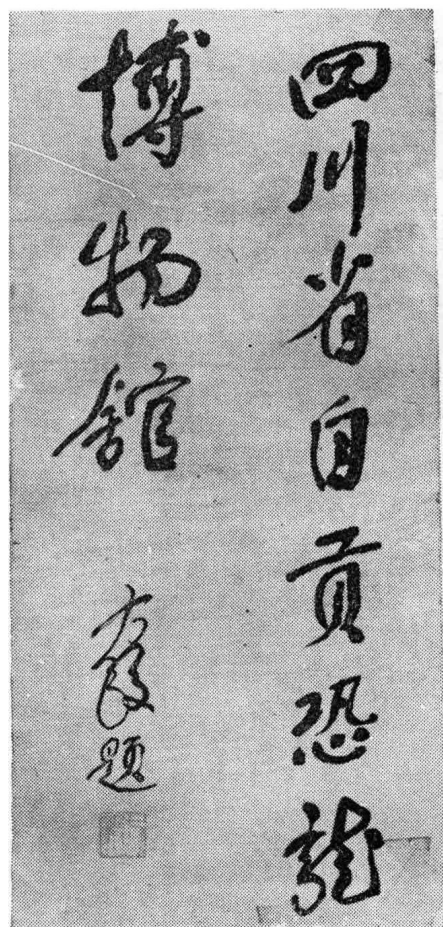 四川省自貢恐龍
博物舘 方毅题